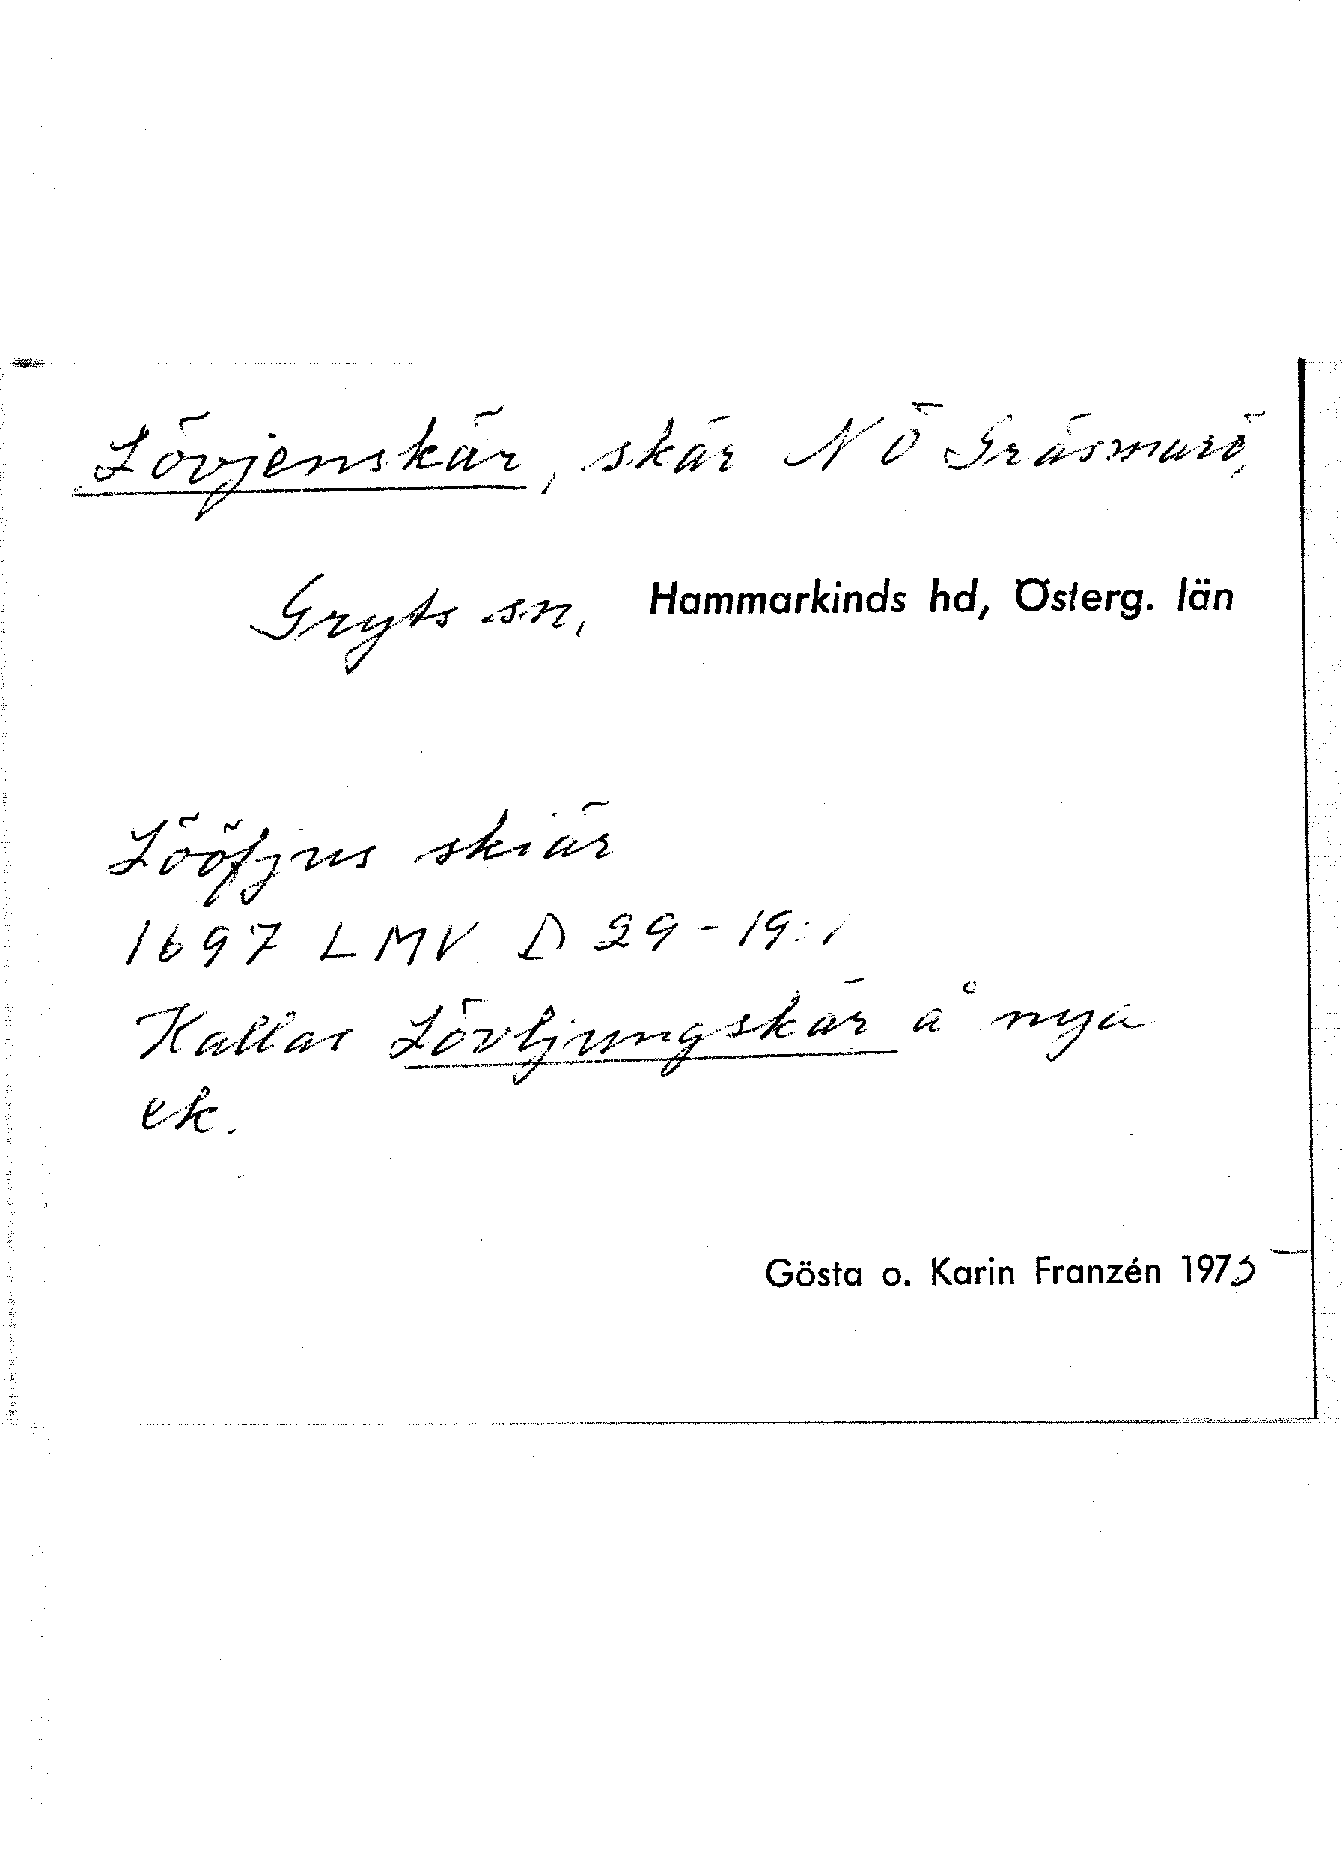 Lövjenskär, skär NÖ Gräsmarö,
Gryts sn, Hammarkinds hd, Österg. län
Lööfjns skiär
1697 LMV D 29-19:1
Kallas Lövljungskär å nya
ek.
Gösta o. Karin Franzén 1973